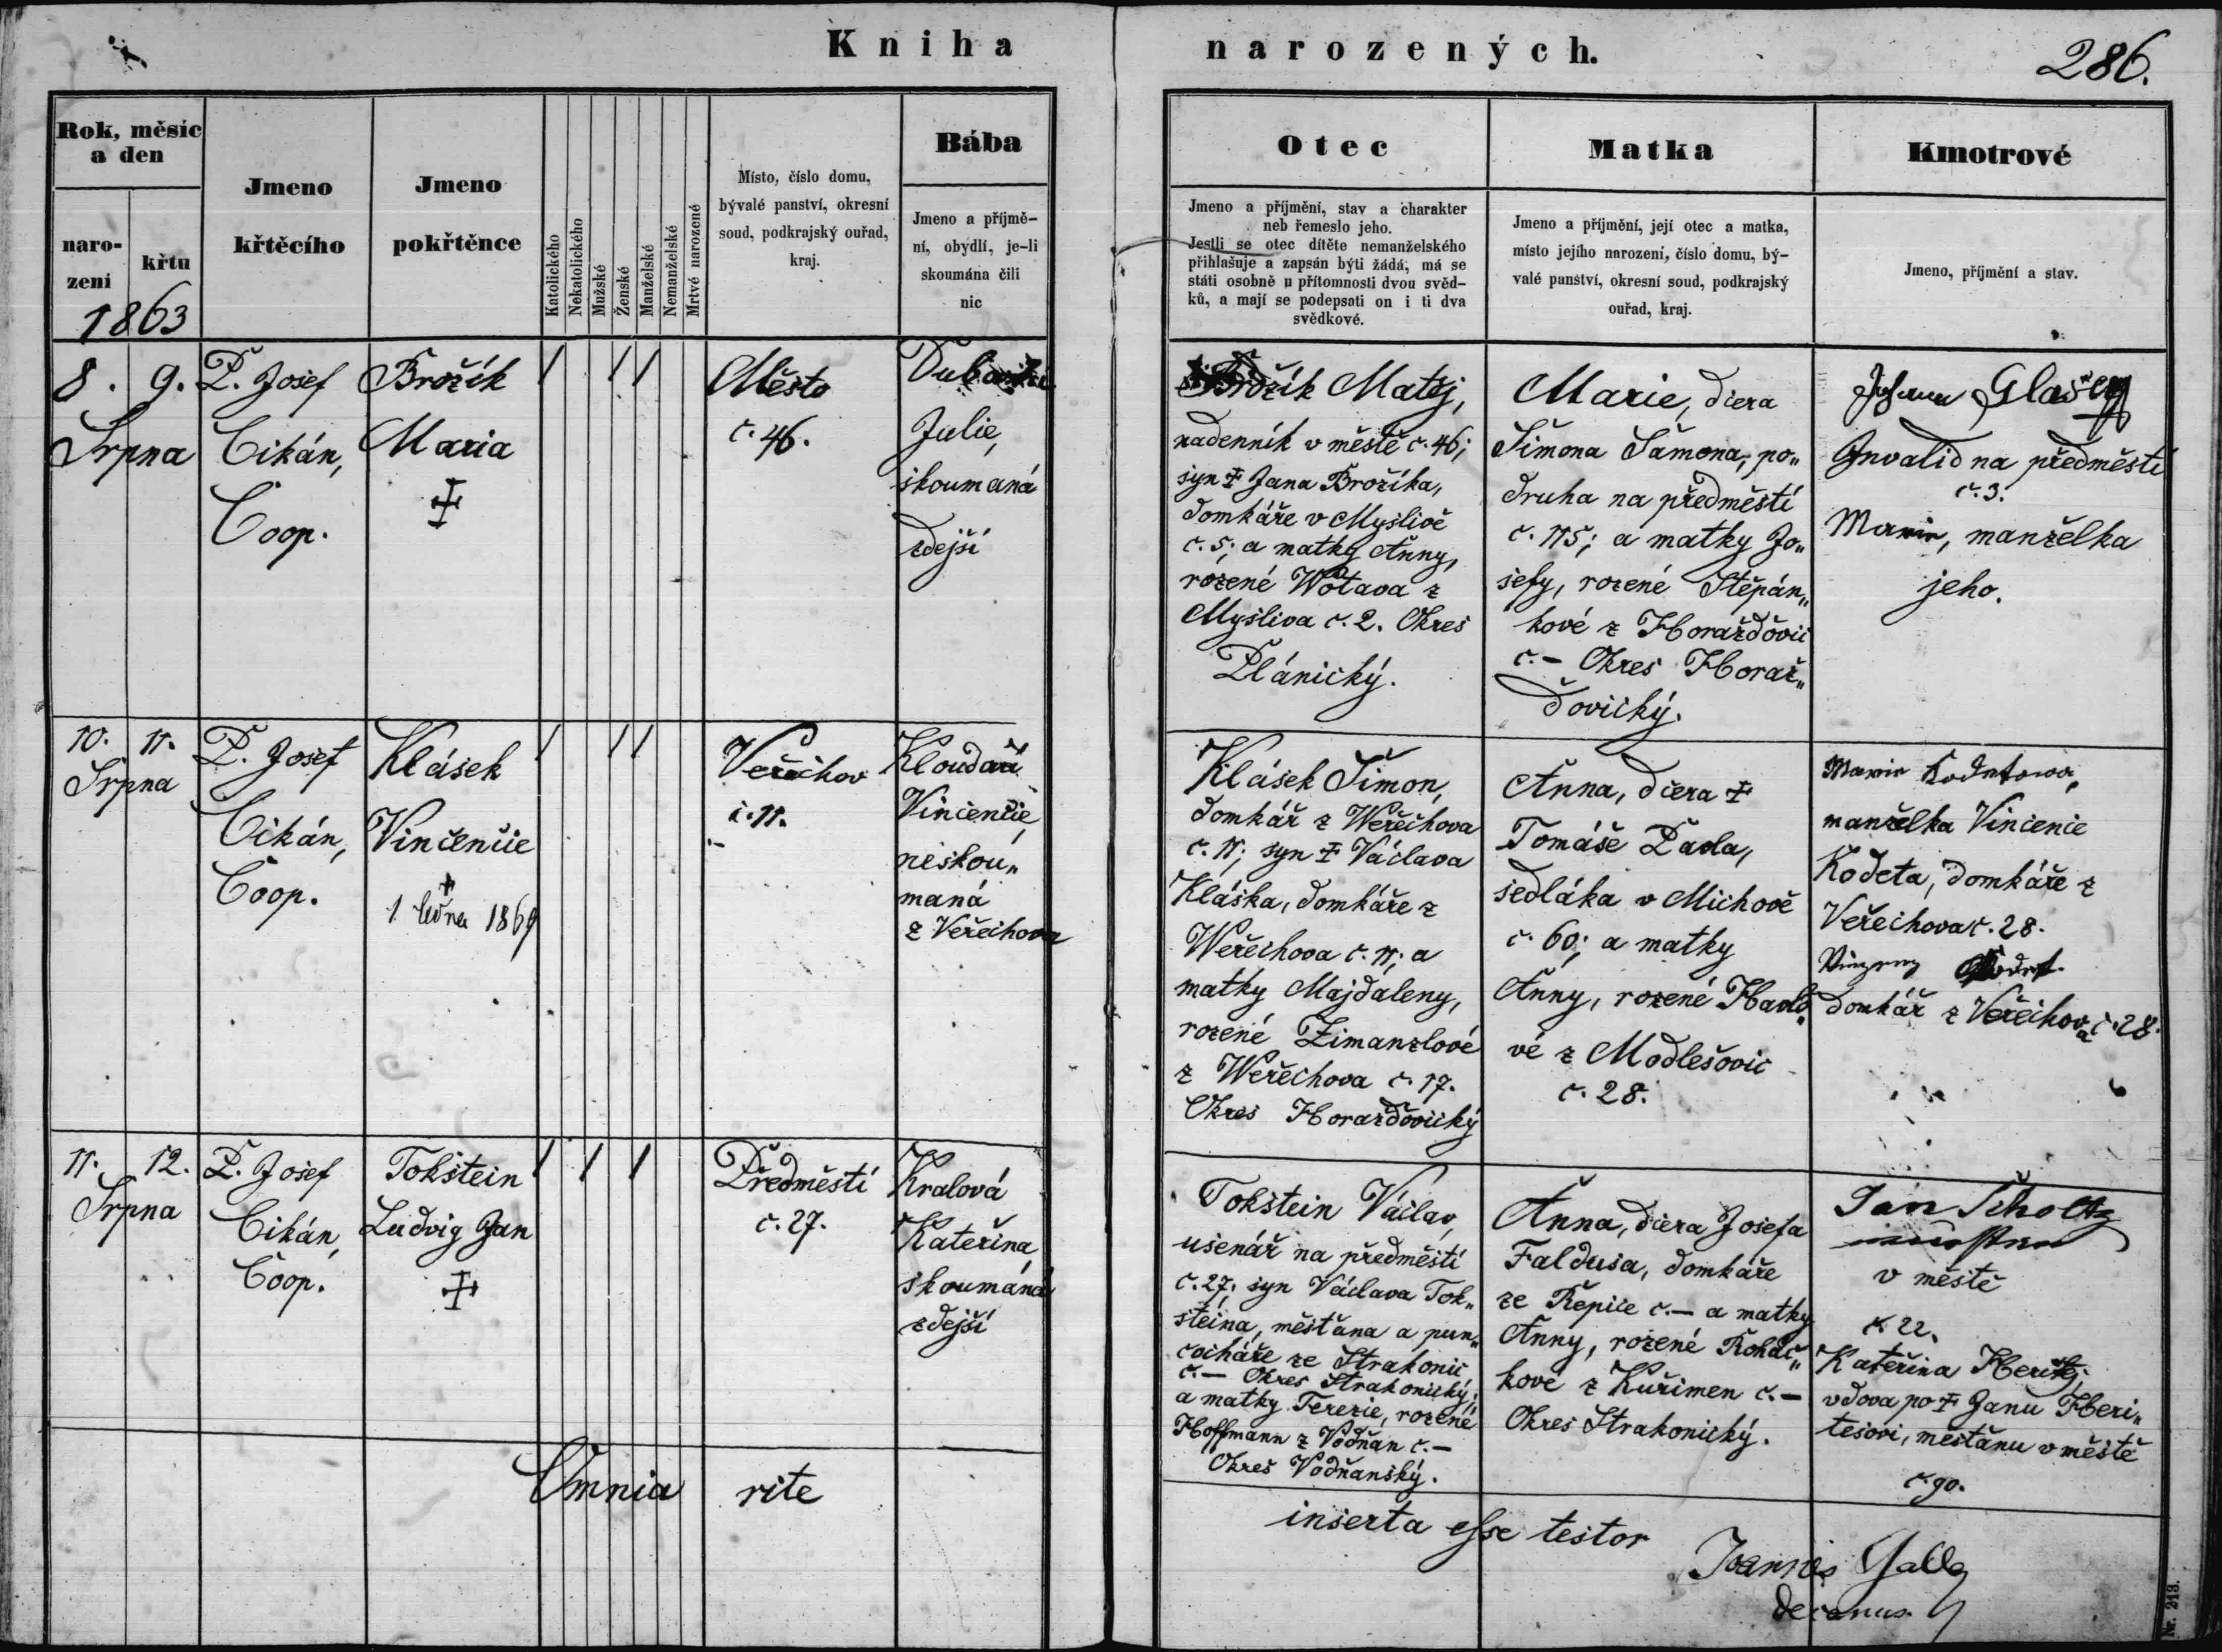 Kniha narozených.
286.
Rok, měsíc
a den
naro-
zení
křtu
1863
Jmeno
křtěcího
Jmeno
pokřtěnce
Katolického
Nekatolického
Mužské
Ženské
Manželské
Nemanželské
Mrtvé narozené
Místo, číslo domu,
bývalé panství, okresní
soud, podkrajský ouřad,
kraj.
Bába
Jmeno a příjmě-
ní, obydlí, je-li
skoumána čili
nic
Otec
Jmeno a příjmění, stav a charakter
neb řemeslo jeho.
Jestli se otec dítěte nemanželského
přihlašuje a zapsán býti žádá, má se
státi osobně u přítomnosti dvou svěd-
ků, a mají se podepsati on i ti dva
svědkové.
Matka
Jmeno a příjmění, její otec a matka,
místo jejího narození, číslo domu, bý-
valé panství, okresní soud, podkrajský
ouřad, kraj.
Kmotrové
Jmeno, příjmění a stav.
8. 9.
Srpna
P. Josef
Cikán,
Coop.
Brožík
Maria
Město
č. 46.
Julie,
skoumaná
zdejší
Brožík Matěj,
nadenník v městě č. 46;
syn ‡ Jana Brožíka,
domkáře v Myslivě
č. 5; a matky Anny,
rozené Wotava z
Mysliva č. 2. Okres
Plánický.
Marie, dcera
Šimona Šamona, po„
druha na předměstí
č. 115; a matky Jo„
sefy, rozené Štěpán„
kové z Horažďovic
č. – Okres Horaž„
ďovický.
Johann
Invalid na předměstí
č. 3.
Marie, manželka
jeho.
10. 11.
Srpna
P. Josef
Cikán,
Coop.
Klásek
Vincencie
†
1 ledna 1869
Veřechov
č. 11.
Vincencie,
neskou„
maná
z Veřechova
Klásek Šimon,
domkář z Weřechova
č. 11; syn ‡ Václava
Kláska, domkáře z
Weřechova č. 11; a
matky Majdaleny,
rozené Zimanzlové
z Weřechova č. 17.
Okres Horažďovický
Anna, dcera ‡
Tomáše Pavla,
sedláka v Michově
č. 60; a matky
Anny, rozené
vé z Modlešovic
č. 28.
Marie Kodetowa,
manželka Vincence
Kodeta, domkáře z
Veřechova č. 28.
domkář z Veřechova č. 28.
11. 12.
Srpna
P. Josef
Cikán,
Coop.
Tokstein
Ludvig Jan
Předměstí
č. 27.
Kralová
Kateřina,
skoumáná
zdejší
Tokstein Václav,
usenář na předměstí
č. 27; syn Václava Tok„
steina, měšťana a pun„
čocháře ze Strakonic
č. – Okres Strakonický;
a matky Terezie, rozené
Hoffmann z Vodňan č. –
Okres Vodňanský.
Anna, dcera Josefa
Faldusa, domkáře
ze Řepice č. – a matky
Anny, rozené Roháč„
kové z Kuřimen č. –
Okres Strakonický.
Jan Scholtz
v městě
č. 22.
Kateřina
vdova po ‡ Janu Heri„
tesovi, měšťanu v městě
č. 90.
Omnia rite
inserta esse testor
Joannes Galla
decanus.
Nr. 213.